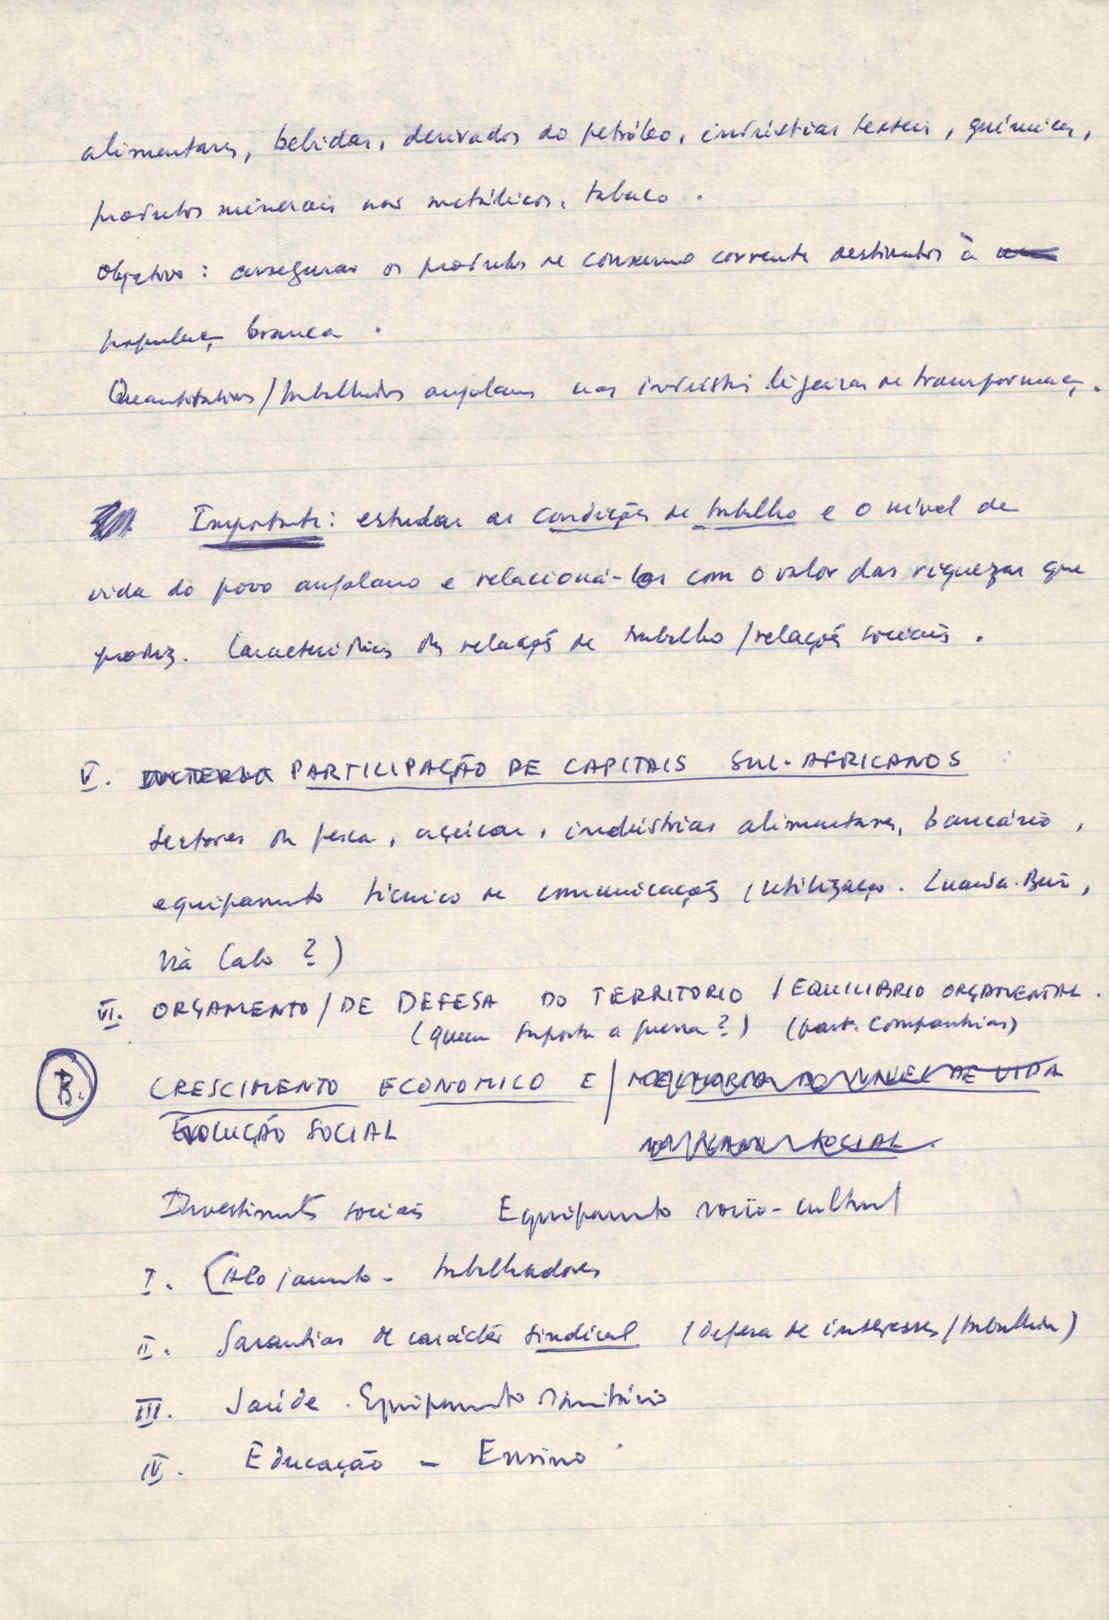 alimentares, bebidas, derivados do petróleo, indústrias texteis, químicas,
produtos minerais não metálicos, tabaco.
Objectivo: assegurar os produtos de consumo corrente destinados à
populaç. branca.
Quantitativos/trabalhadores angolanos nas indústrias ligeiras de transformaç.
Importante: estudar as condições de trabalho e o nível de
vida do povo angolano e relacioná-los com o valor das riquezas que
produz. Características das relações de trabalho/relações sociais.
V. PARTICIPAÇÃO DE CAPITAIS SUL-AFRICANOS
Sectores da pesca, açúcar, indústrias alimentares, bancário,
equipamento técnico de comunicações (utilização. Luanda.
Via Cabo ?)
VI. ORÇAMENTO/DE DEFESA DO TERRITORIO / EQUILIBRIO ORÇAMENTAL.
(quem suporta a guerra?) (part. Companhias)
B. CRESCIMENTO ECONOMICO E / MELHORIA DO NIVEL DE VIDA
EVOLUÇÃO SOCIAL
SOCIAL.
Investimentos sociais Equipamento socio-cultural
I. (Alojamento - trabalhadores
II. Garantias de carácter sindical (defesa de interesses/trabalhad)
III. Saúde. Equipamento sanitário
IV. Educação - Ensino